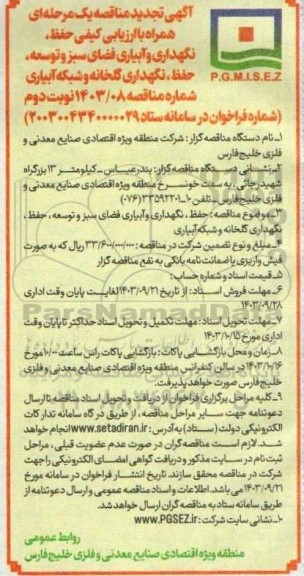 آگهی تجدید مناقصه یک مرحله‌ای
همراه با ارزیابی کیفی حفظ،
نگهداری و آبیاری فضای سبز و توسعه،
حفظ، نگهداری گلخانه و شبکه آبیاری
P.G.M.I.S.E.Z
شماره مناقصه ۱۴۰۳/۰۸ نوبت دوم
(شماره فراخوان در سامانه ستاد ۲۰۰۳۰۰۴۳۴۰۰۰۰۰۲۹)
۱ـ نام دستگاه مناقصه گزار: شرکت منطقه ویژه اقتصادی صنایع معدنی و
فلزی خلیج فارس
۲ـ نشانی دستگاه مناقصه گزار: بندرعباس ـ کیلومتر ۱۳ بزرگراه
شهید رجائی، به سمت خونسرخ منطقه ویژه اقتصادی صنایع معدنی و
فلزی خلیج فارس ـ تلفن ۱۰ـ۳۳۵۹۲۲۰۱(۰۷۶)
۳ـ موضوع مناقصه: حفظ، نگهداری و آبیاری فضای سبز و توسعه، حفظ،
نگهداری گلخانه و شبکه آبیاری
۴ـ مبلغ و نوع تضمین شرکت در مناقصه: ۳۳/۶۰۰/۰۰۰/۰۰۰ ریال که به صورت
فیش واریزی یا ضمانت نامه بانکی به نفع مناقصه گزار
۵ـ قیمت اسناد و شماره حساب:
۶ـ مهلت فروش اسناد: از تاریخ ۱۴۰۳/۰۹/۲۱ لغایت پایان وقت اداری
۱۴۰۳/۰۹/۲۸
۷ـ مهلت تحویل اسناد: مهلت تکمیل و تحویل اسناد حداکثر تا پایان وقت
اداری مورخ ۱۴۰۳/۱۰/۱۵
۸ـ زمان و محل بازگشایی پاکات: بازگشایی پاکات راس ساعت ۱۰:۰۰ مورخ
۱۴۰۳/۱۰/۱۶ در سالن کنفرانس منطقه ویژه اقتصادی صنایع معدنی و فلزی
خلیج فارس صورت خواهد پذیرفت.
۹ـ کلیه مراحل برگزاری فراخوان از دریافت و تحویل اسناد مناقصه تا ارسال
دعوتنامه جهت سایر مراحل مناقصه، از طریق درگاه سامانه تدارکات
الکترونیکی دولت (ستاد) به آدرس: www.setadiran.ir انجام خواهد
شد. لازم است مناقصه گران در صورت عدم عضویت قبلی، مراحل
ثبت نام در سایت مذکور و دریافت گواهی امضای الکترونیکی را جهت
شرکت در مناقصه محقق سازند. تاریخ انتشار فراخوان در سامانه مورخ
۱۴۰۳/۰۹/۲۱ می باشد. اطلاعات و اسناد مناقصه عمومی و ارسال دعوتنامه از
طریق سامانه ستاد به مناقصه گران ارسال خواهد شد.
۱۰ـ نشانی سایت شرکت: www.PGSEZ.ir
روابط عمومی
منطقه ویژه اقتصادی صنایع معدنی و فلزی خلیج فارس